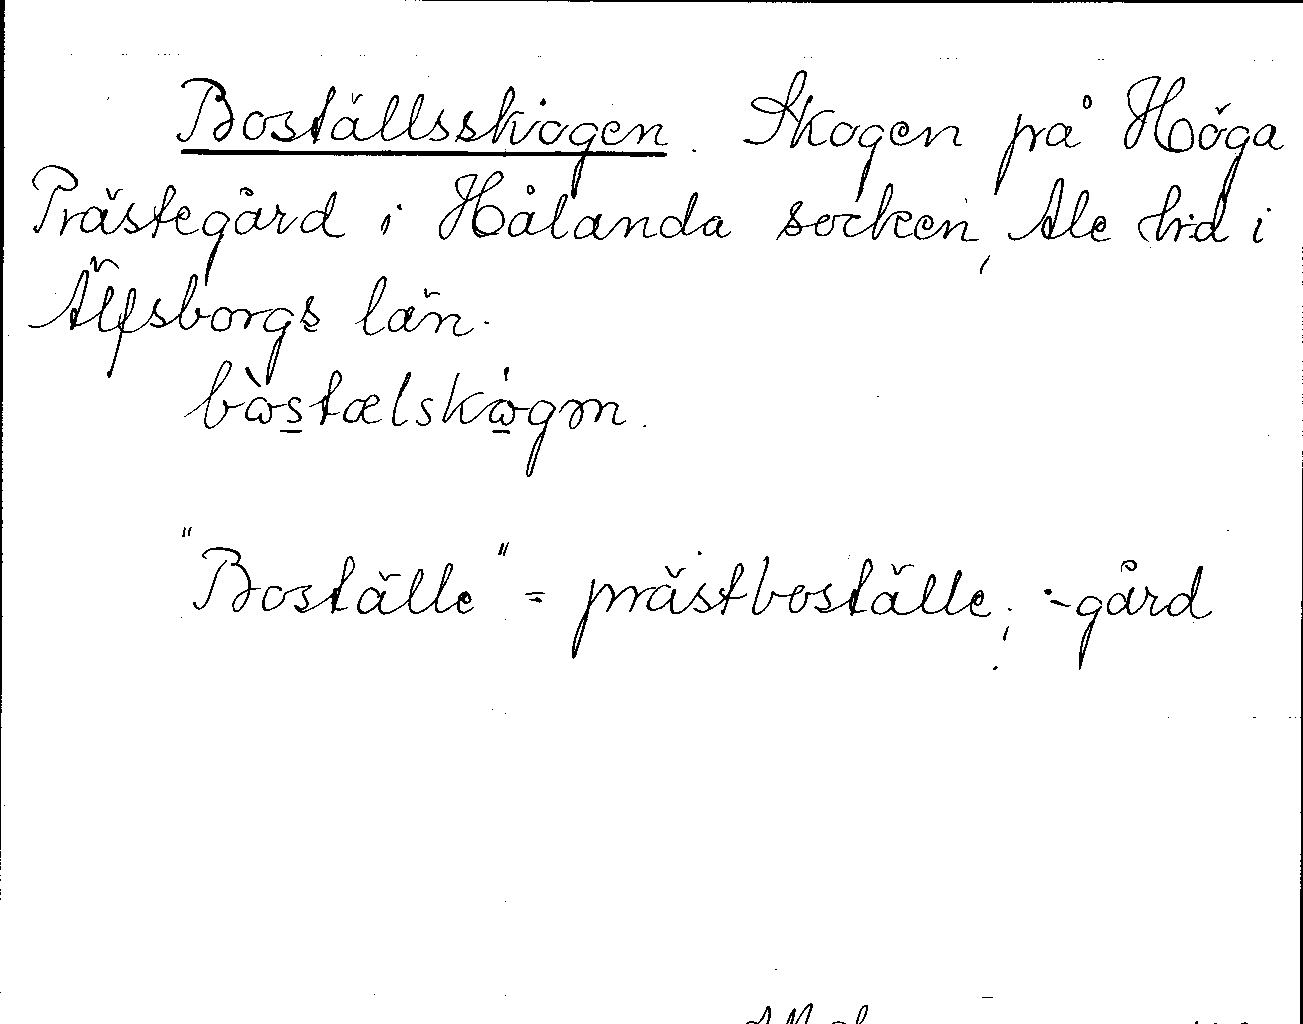 Boställsskogen. Skogen på Höga
Prästegård i Hålanda socken, Ale hd i
Älfsborgs län.
bὼstælskὼgm.
"Boställe" = prästboställe, -gård